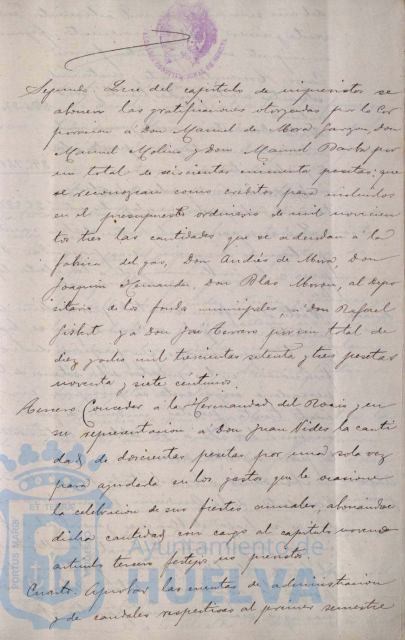 Segundo. Que del capitulo de imprevistos se
abonen las gratificaciones otorgadas por la Cor
poracion á Don Manuel de Mora Garzon, Don
Manuel Molina y Don Manuel por
un total de seiscientas cincuenta pesetas; que
se reconozcan como créditos para incluirlos
en el presupuesto ordinario de mil novecien
tos tres las cantidades que se adeudan á la
fábrica del gas, Don Andrés de Mora, Don
Joaquin Don Blas Moron, al depo
sitario de los fondos municipales, á Don Rafael
y á Don José Terrero por un total de
diez y ocho mil trescientas setenta y tres pesetas
noventa y siete centimos.
Tercero. Conceder á la Hermandad del Rocio y en
su representacion á Don Juan Vides la canti
dad de doscientas pesetas por una sola vez
para ayudarla en los gastos que le ocasione
la celebracion de sus fiestas anuales, abonandose
dicha cantidad con cargo al capitulo noveno
articulo tercero festejos no previstos.
Cuarto. Aprobar las cuentas de administracion
y de caudales respectivas al primer semestre
PORTUS MARIS
ET TE
Ayuntamiento de
HUELVA